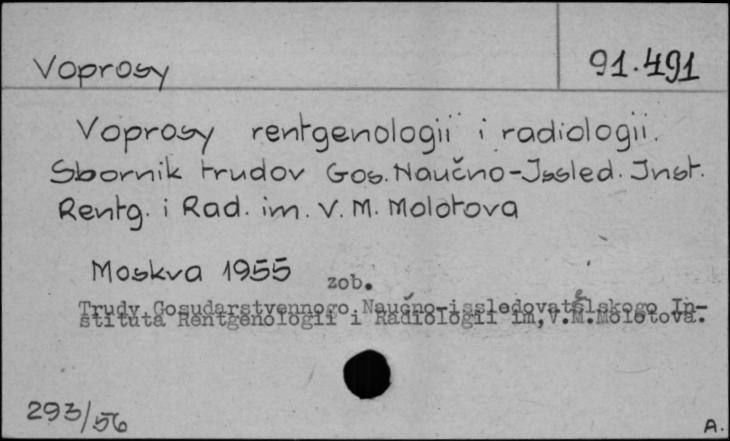 Voprosy
91.491
Voprosy rentgenologii i radiologii.
Sbornik trudov Gos. Naučno-Issled. Inst.
Rentg. i Rad. im. V. M. Molotova
Moskva 1955
zob.
Trudy Gosudarstvennogo Naučno-issledovatělskogo In-
stituta Rentgenologii i Radiologii im,V.M.Molotova.
293/56
A.